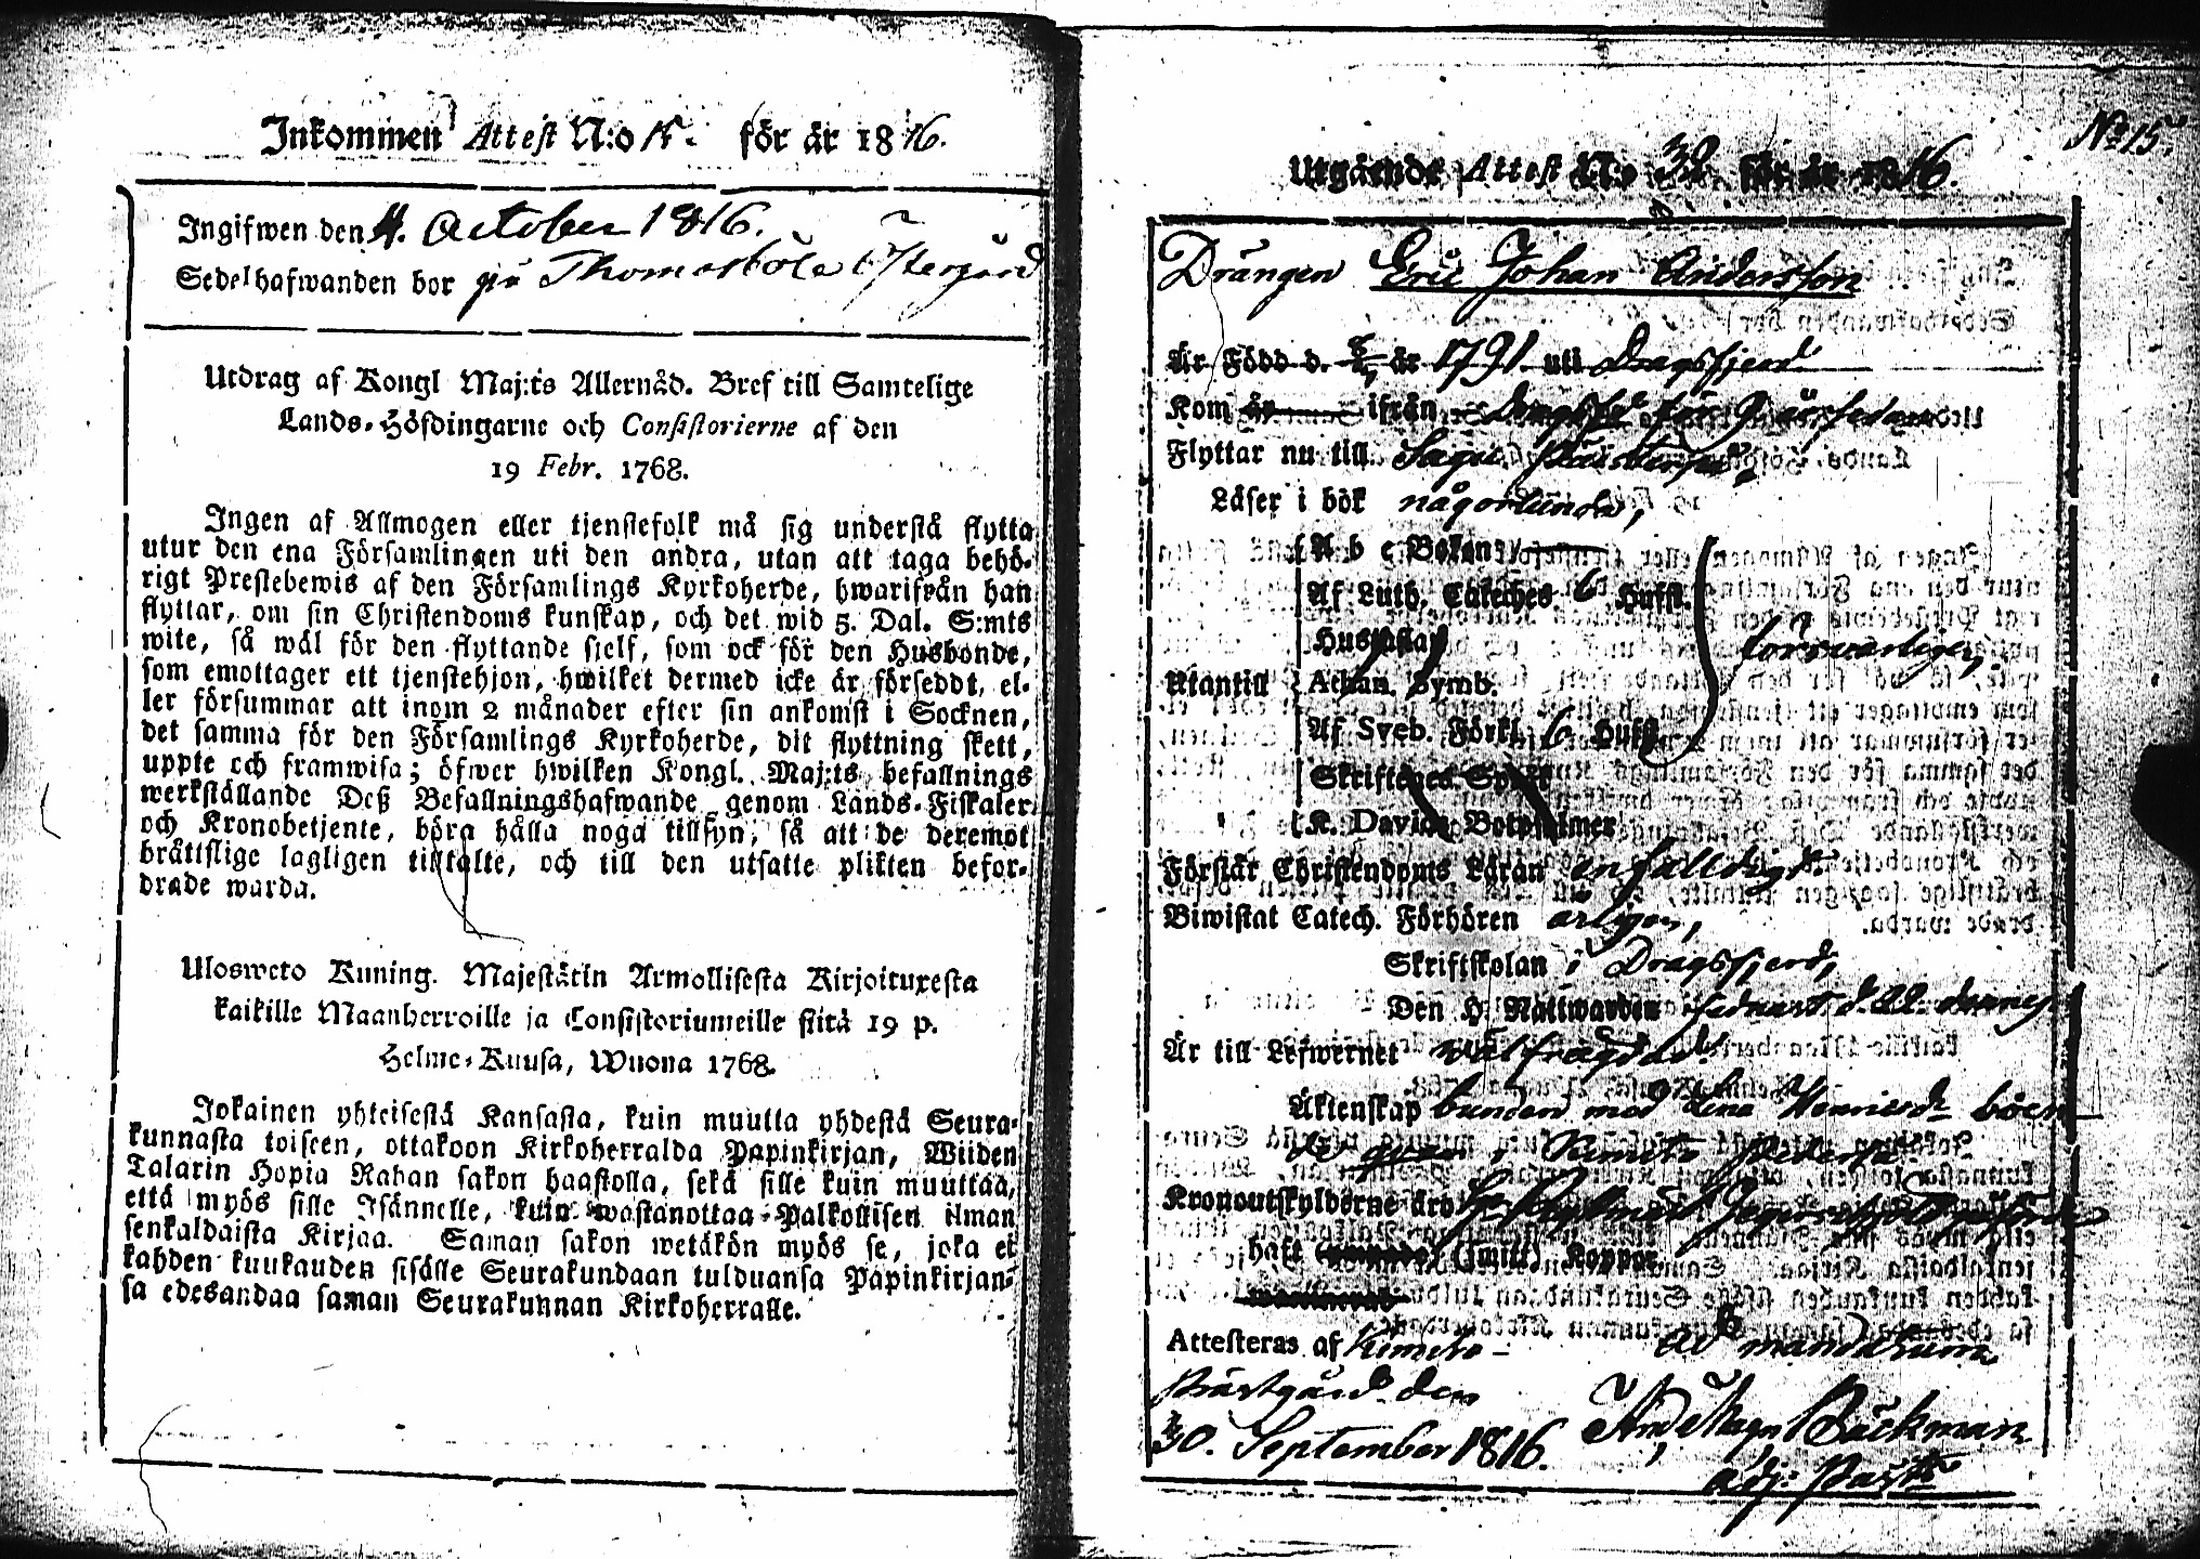 Inkommen Attest N:o 15. för år 1816.
Ingifwen den 4. October 1816.
Sedelhafwanden bor på Thomasböle Östergård
Utdrag af Kongl Maj:ts Allernåd. Bref till Samtelige
Lands-Höfdingarne och Consistorierne af den
19 Febr. 1768.
Ingen af Allmogen eller tjenstefolk må sig understå flytta
utur den ena Församlingen uti den andra, utan att taga behö-
rigt Prestebewis af den Församlings Kyrkoherde, hwarifrån han
flyttar, om sin Christendoms kunskap, och det wid 5. Dal. S:mts
wite, så wäl för den flyttande sjelf, som ock för den Husbonde,
som emottager ett tjenstehjon, hwilket dermed icke är försedt, el-
ler försummar att inom 2 månader efter sin ankomst i Socknen,
det samma för den Församlings Kyrkoherde, dit flyttning skett,
uppte och framwisa; öfwer hwilken Kongl. Maj:ts befallnings
werkställande Deß Befallningshafwande genom Lands-Fiskaler
och Kronobetjente, böra hålla noga tillsyn, så att de deremot
bråttslige lagligen tilltalte, och till den utsatte plikten befor-
drade warda.
Ulosweto Kuning. Majestätin Armollisesta Kirjoituxesta
kaikille Maanherroille ja Consistoriumeille siitä 19 p.
Helme-Kuusa, Wuona 1768.
Jokainen yhteisestä Kansasta, kuin muutta yhdestä Seura-
kunnasta toiseen, ottakoon Kirkoherralda Papinkirjan, Wiiden
Talarin Hopia Rahan sakon haastolla, sekä sille kuin muuttaa,
että myös sille Isännelle, kuin wastanottaa Palkollisen ilman
senkaldaista Kirjaa. Saman sakon wetäkön myös se, joka ei
kahden kuukauden sisälle Seurakundaan tulduansa Papinkirjan-
sa edesandaa saman Seurakunnan Kirkoherralle.
No 15.
Utgående Attest N:o 32. för år 1816.
Drängen Eric Johan Andersson
Är Född d. år 1791. uti Dragsfjerd
Kom år ifrån Dragsfd för 9 år sedan
Flyttar nu till Sagu
Läser i bok någorlunda,
A b c Boken
Af Luth. Cateches 6 Hufst.
Hustaflan
Utantill Athan. Symb. försvarligen,
Af Sveb. Förkl. 6 Hufst.
Skriftenes Språk
K. Davids Botpsalmer
Förstår Christendoms Läran enfalldigt.
Biwistat Catech. Förhören årligen,
Skriftskolan i Dragsfjerd,
Den H. Nattwarden sednast d. 22. dennes.
Är till Lefwernet wälfrägdad.
Äktenskap bunden med Lena Henricsdr boen-
de qvar i Kimito
Kronoutskylderne äro
haft (smitt) Koppor
Attesteras af Kimito-
Prästgård den ad mandatum
30. September 1816. And Magn Bäckman
adj: Past: